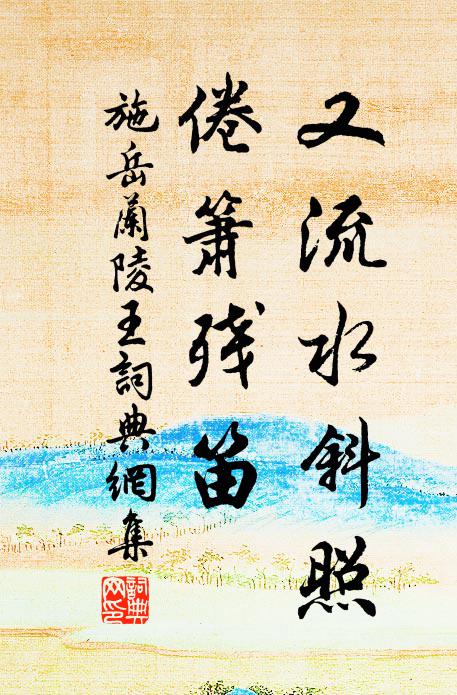 又流水斜照
倦箫残笛
施岳蘭陵王詞典網集
詞典